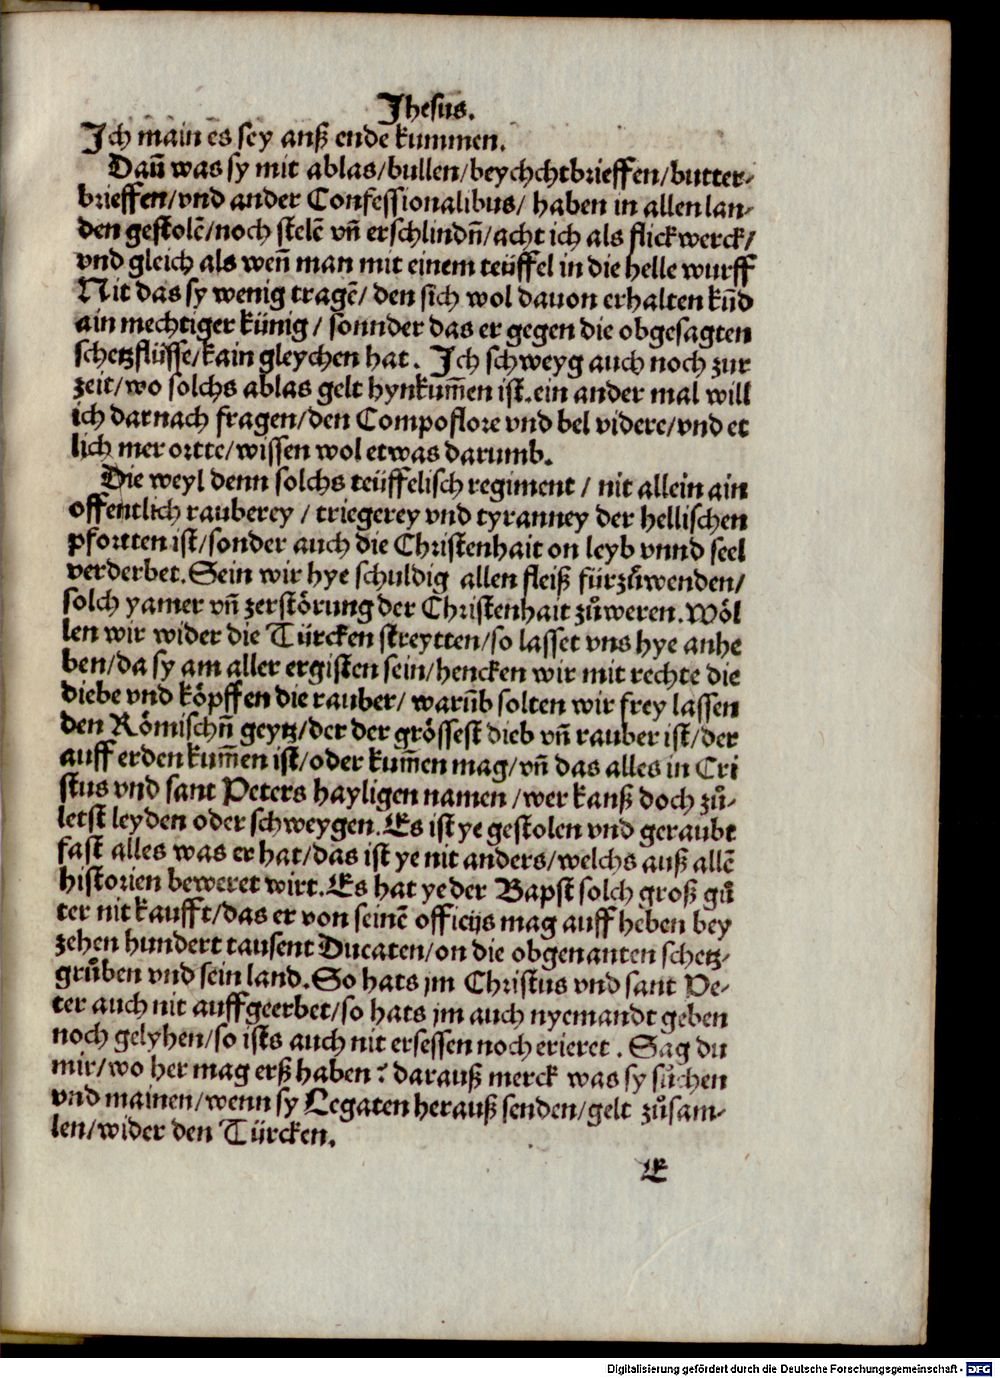 Jhesus.
Ich main es sey anß ende kummen.
Dañ was sy mit ablas/bullen/beychchtbrieffen/butter-
brieffen/vnd ander Confessionalibus/ haben in allen lan-
den gestolē/noch stelē vñ erschlindn̄/acht ich als flickwerck/
vnd gleich als weñ man mit einem teüffel in die helle wurff
Nit das sy wenig tragē/ den sich wol dauon erhalten kūd
ain mechtiger künig/ sonnder das er gegen die obgesagten
schetzflüsse/kain gleychen hat. Ich schweyg auch noch zur
zeit/wo solchs ablas gelt hynkum̄en ist.ein ander mal will
ich darnach fragen/den Compoflore vnd bel videre/vnd et
lich mer ortte/wissen wol etwas darumb.
Die weyl denn solchs teüffelisch regiment / nit allein ain
offentlich rauberey / triegerey vnd tyranney der hellischen
pfortten ist/sonder auch die Christenhait on leyb vnnd seel
verderbet.Sein wir hye schuldig allen fleiß fürzůwenden/
solch yamer vñ zerstörung der Christenhait zůweren.Wöl
len wir wider die Türcken streytten/so lasset vns hye anhe
ben/da sy am aller ergisten sein/hencken wir mit rechte die
diebe vnd köpffen die rauber/ warūb solten wir frey lassen
den Römischn̄ geytz/der der grössest dieb vñ rauber ist/der
auff erden kum̄en ist/oder kum̄en mag/vñ das alles in Cri
stus vnd sant Peters hayligen namen/wer kanß doch zů-
letst leyden oder schweygen.Es ist ye gestolen vnd geraubt
fast alles was er hat/das ist ye nit anders/welchs auß allē
historien beweret wirt.Es hat ye der Bapst solch groß gů
ter nit kaufft/das er von seinē officijs mag auff heben bey
zehen hundert tausent Ducaten/on die obgenanten schetz-
grůben vnd sein land.So hats jm Christus vnd sant Pe-
ter auch nit auffgeerbet/so hats jm auch nyemandt geben
noch gelyhen/so ists auch nit ersessen noch erieret. Sag du
mir/wo her mag erß haben? darauß merck was sy sůchen
vnd mainen/wenn sy Legaten herauß senden/gelt zůsam-
len/wider den Türcken.
E
Digitalisierung gefördert durch die Deutsche Forschungsgemeinschaft - DFG